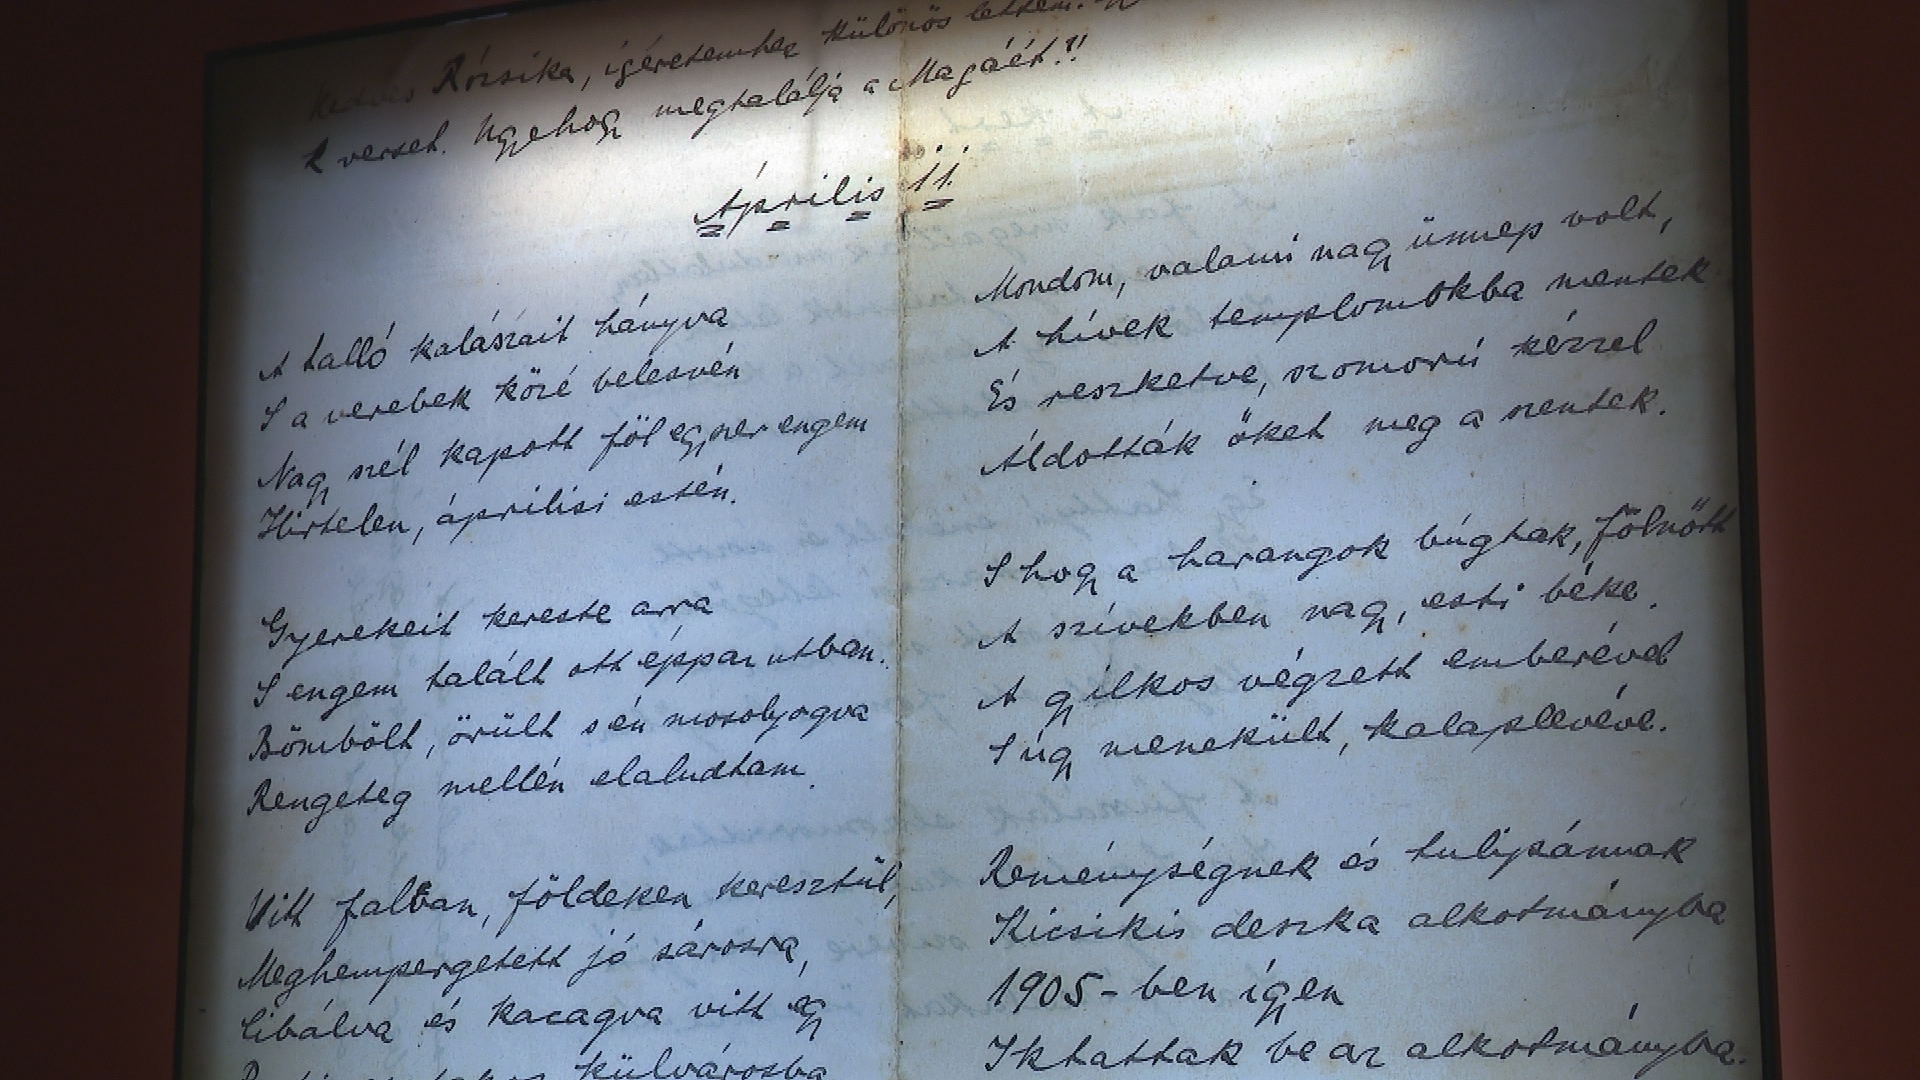 Kedves Rózsika, igéretemhez különös lettem.
A verset. Ugyehogy megtalálja a Magáét?!
Április 11.
A talló kalászait hányva
S a verebek közé belesvén
Nagy szél kapott föl egyszer engem
Hirtelen, áprilisi estén.
Gyerekeit kereste arra
S engem talált ott éppaz utban.
Bömbölt, örült s én mosolyogva
Rengeteg mellén elaludtam.
Vitt falban, földeken keresztül,
Meghempergetett jó sárosra,
Cibálva és kacagva vitt egy
külvárosba
Mondom, valami nagy ünnep volt,
A hívek templomokba mentek
És reszketve, szomorú kézzel
Áldották őket meg a szentek.
S hogy a harangok búgtak, fölnőtt
A szívekben nagy, esti béke.
A gyilkos végzett emberével
S úgy menekült, kalaplevéve.
Reménységnek és tulipánnak
Kicsikis deszka alkotmányba
1905-ben ígen
Iktattak be az alkotmányba.